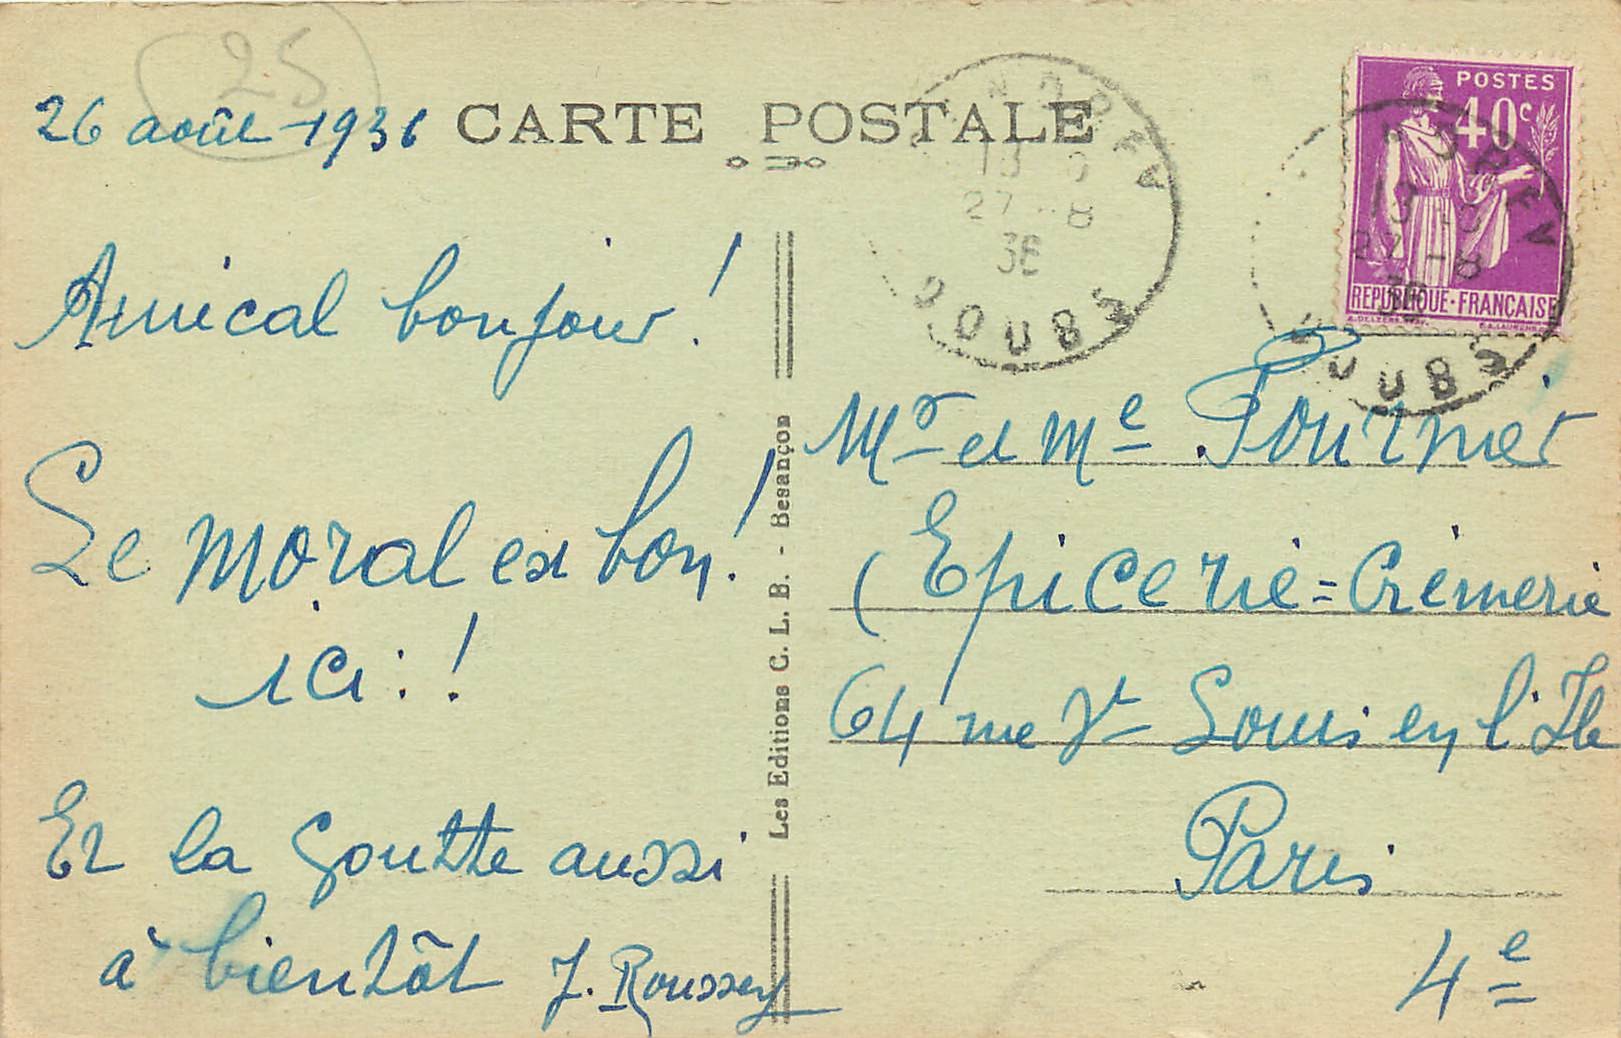 25
26 août 1936
CARTE POSTALE
Amical bonjour !
Le moral est bon !
ici : !
Et la goutte aussi
à bientôt J. Roussey
Les Editions C. L. B. - Besançon
27 -8
36
DOUBS
POSTES
40c
REPUBLIQUE·FRANÇAISE
27 -8
36
DOUBS
Mr et Me Fournier
(Epicerie=Crèmerie
64 rue St Louis en l'Ile
Paris
4e